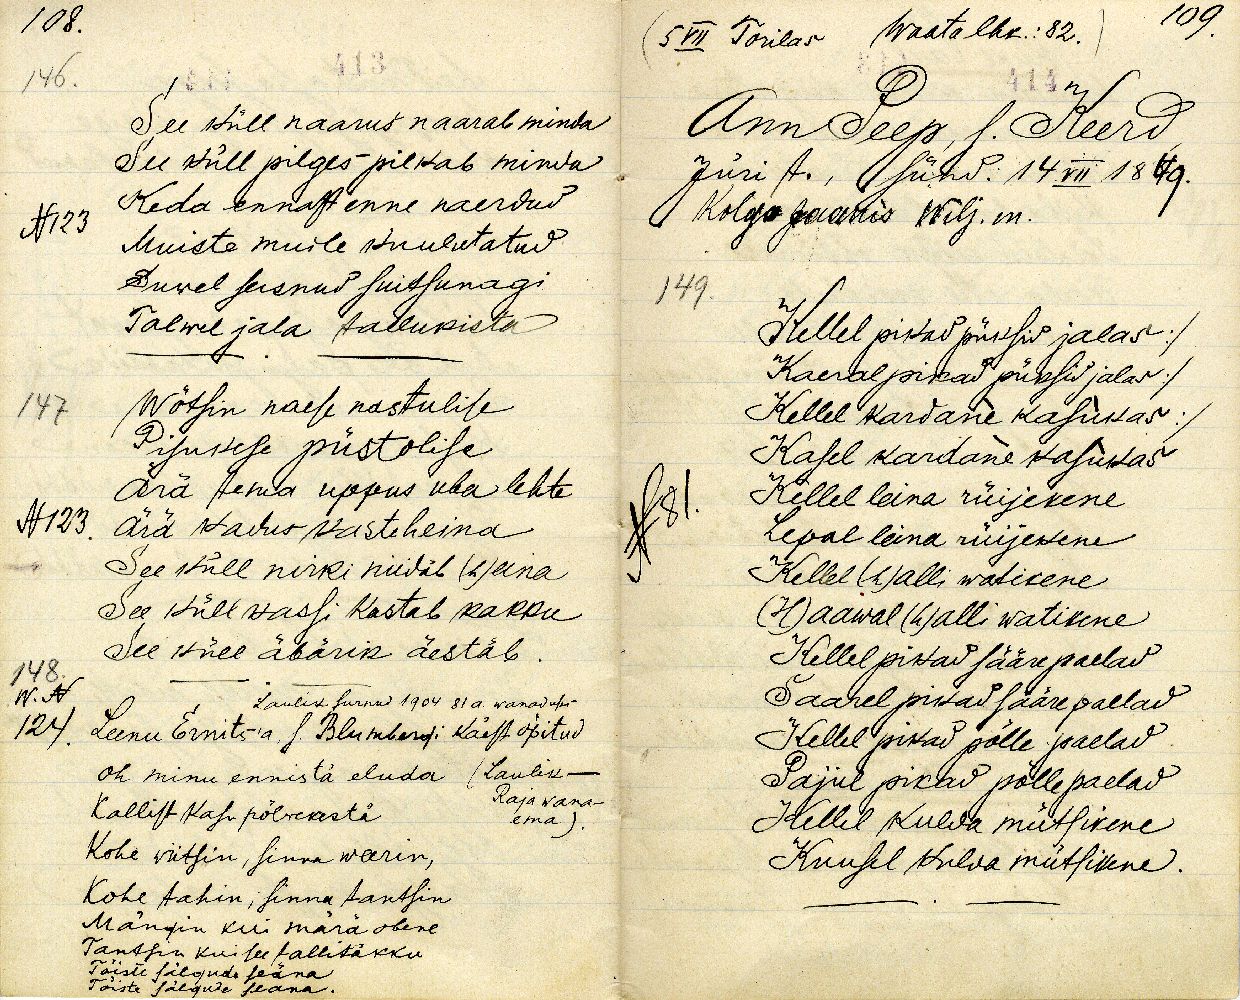 108.
413
146.
See küll naarus naarab minda
See küll pilges pilkab minda
Keda ennast enne naerdud
N123
Muiste muile kuulutatud
Suwel seisnud suitsunagi
Talwel jala tallukista
147
Wõtsin naese nastulise
Pisukese püstolise
Ärä tema uppus uba lehte
N123.
Ärä kadus kasteheina
See küll nirki niidäb (h)eina
See küll kassi kastab kakku
See küll äbärik äestäb.
148.
W. N
124.
Laulik surnud 1904 81 a. wanadus
Leenu Ernits'a, s. Blumbergi käest õpitud
oh minu ennistä eluda (Laulik—
Raja wana-
ema).
Kallist kasu põlwekestä
Kohe wiitsin, sinna weerin,
Kohe tahin, sinna tantsin
Mängin kui märä obene
Tantsin kui see tallitäkku
Tõiste sälgude seäna
Tõiste sälgude seäna.
109.
(5 VII Torilas Waata lhk.: 82.)
414
Ann Peep, s. Keerd,
Jüri t., sünd. 14 VII 1849.
Kolga Jaanis Wilj. m.
149.
Kellel pikad püksid jalas :/
Kaeral pikad püksid jalas :/
Kellel kardane kasukas :/
Kasel kardane kasukas
N 81.
Kellel leina rüijekene
Lepal leina rüijekene
Kellel (h)alli watikene
(H)aawal (h)alli watikene
Kellel pikad sääre paelad
Saarel pikad sääre paelad
Kellel pikad põlle paelad
Pajul pikad põllepaelad
Kellel kulda mütsikene
Kuusel kulda mütsikene.